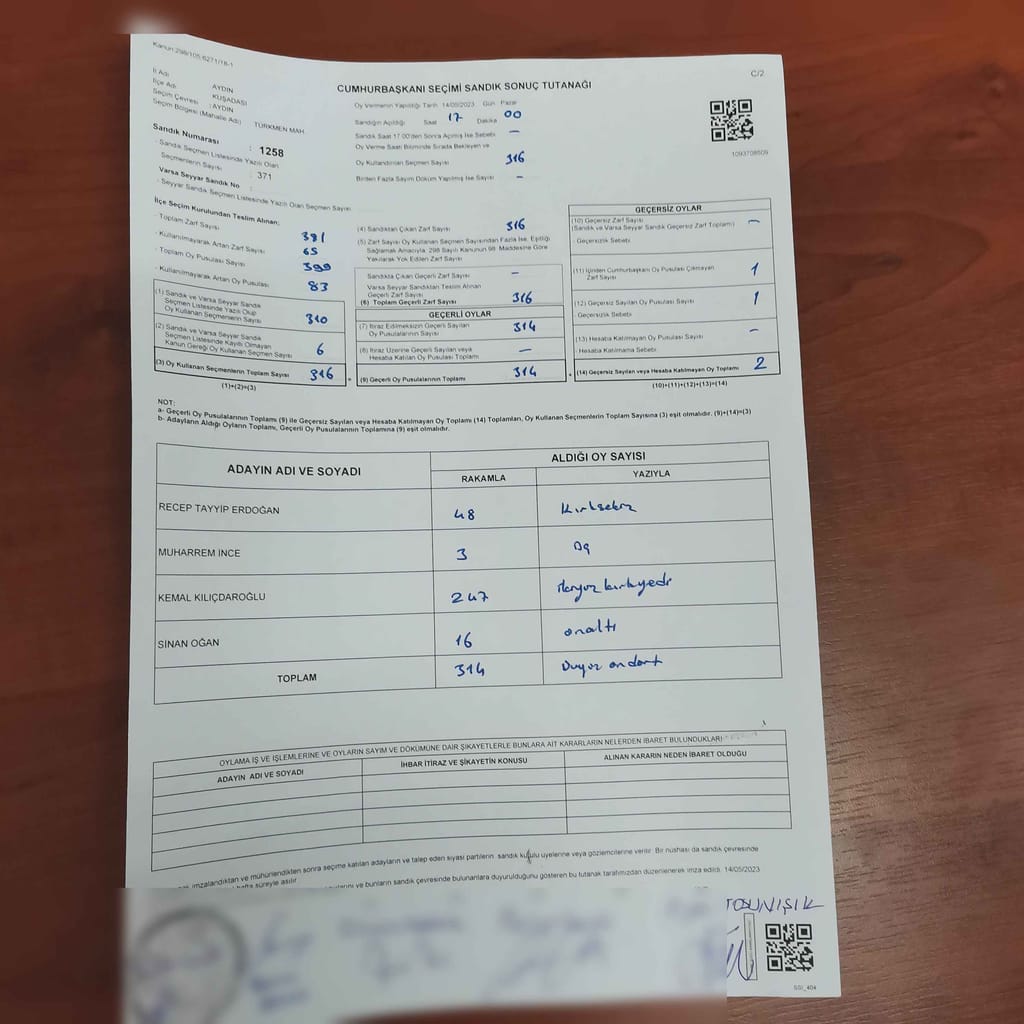 Kanun:298/105,6271/18-1
C/2
CUMHURBAŞKANI SEÇİMİ SANDIK SONUÇ TUTANAĞI
İl Adı AYDIN
İlçe Adı : KUŞADASI
Seçim Çevresi : AYDIN
Seçim Bölgesi (Mahalle Adı) TÜRKMEN MAH.
Sandık Numarası : 1258
- Sandık Seçmen Listesinde Yazılı Olan
Seçmenlerin Sayısı : 371
Varsa Seyyar Sandık No :
- Seyyar Sandık Seçmen Listesinde Yazılı Olan Seçmen Sayısı
Oy Vermenin Yapıldığı Tarih 14/05/2023 Gün Pazar
Sandığın Açıldığı Saat 17 - Dakika 00
Sandık Saat 17.00'den Sonra Açılmış İse Sebebi —
Oy Verme Saati Bitiminde Sırada Bekleyen ve
Oy Kullandırılan Seçmen Sayısı 316
Birden Fazla Sayım Döküm Yapılmış İse Sayısı —
1093708509
İlçe Seçim Kurulundan Teslim Alınan:
- Toplam Zarf Sayısı 381
- Kullanılmayarak Artan Zarf Sayısı 65
- Toplam Oy Pusulası Sayısı 399
- Kullanılmayarak Artan Oy Pusulası 83
(1) Sandık ve Varsa Seyyar Sandık
Seçmen Listesinde Yazılı Olup
Oy Kullanan Seçmenlerin Sayısı 310
(2) Sandık ve Varsa Seyyar Sandık
Seçmen Listesinde Kayıtlı Olmayan
Kanun Gereği Oy Kullanan Seçmen Sayısı 6
(3) Oy Kullanan Seçmenlerin Toplam Sayısı 316
(1)+(2)=(3)
(4) Sandıktan Çıkan Zarf Sayısı 316
(5) Zarf Sayısı Oy Kullanan Seçmen Sayısından Fazla İse, Eşitliği
Sağlamak Amacıyla, 298 Sayılı Kanunun 98. Maddesine Göre
Yakılarak Yok Edilen Zarf Sayısı
Sandıkta Çıkan Geçerli Zarf Sayısı —
Varsa Seyyar Sandıktan Teslim Alınan
Geçerli Zarf Sayısı
(6) Toplam Geçerli Zarf Sayısı 316
GEÇERLİ OYLAR
(7) İtiraz Edilmeksizin Geçerli Sayılan
Oy Pusulalarının Sayısı 314
(8) İtiraz Üzerine Geçerli Sayılan veya
Hesaba Katılan Oy Pusulası Toplamı —
(9) Geçerli Oy Pusulalarının Toplamı 314
GEÇERSİZ OYLAR
(10) Geçersiz Zarf Sayısı —
(Sandık ve Varsa Seyyar Sandık Geçersiz Zarf Toplamı)
- Geçersizlik Sebebi
(11) İçinden Cumhurbaşkanı Oy Pusulası Çıkmayan
Zarf Sayısı 1
(12) Geçersiz Sayılan Oy Pusulası Sayısı 1
Geçersizlik Sebebi
(13) Hesaba Katılmayan Oy Pusulası Sayısı —
- Hesaba Katılmama Sebebi
(14) Geçersiz Sayılan veya Hesaba Katılmayan Oy Toplamı 2
(10)+(11)+(12)+(13)=(14)
NOT:
a- Geçerli Oy Pusulalarının Toplamı (9) ile Geçersiz Sayılan veya Hesaba Katılmayan Oy Toplamı (14) Toplamları, Oy Kullanan Seçmenlerin Toplam Sayısına (3) eşit olmalıdır. (9)+(14)=(3)
b- Adayların Aldığı Oyların Toplamı, Geçerli Oy Pusulalarının Toplamına (9) eşit olmalıdır.
ADAYIN ADI VE SOYADI
ALDIĞI OY SAYISI
RAKAMLA YAZIYLA
RECEP TAYYİP ERDOĞAN 48 Kırksekiz
MUHARREM İNCE 3
KEMAL KILIÇDAROĞLU 247 ikiyüz kırkyedi
SİNAN OĞAN 16 onaltı
TOPLAM 314 ondört
OYLAMA İŞ VE İŞLEMLERİNE VE OYLARIN SAYIM VE DÖKÜMÜNE DAİR ŞİKAYETLERLE BUNLARA AİT KARARLARIN NELERDEN İBARET BULUNDUKLARI
ADAYIN ADI VE SOYADI İHBAR İTİRAZ VE ŞİKAYETİN KONUSU ALINAN KARARIN NEDEN İBARET OLDUĞU
imzalandıktan ve mühürlendikten sonra seçime katılan adayların ve talep eden siyasi partilerin sandık kurulu üyelerine veya gözlemcilerine verilir. Bir nüshası da sandık çevresinde
hafta süreyle asılır.
ve bunların sandık çevresinde bulunanlara duyurulduğunu gösteren bu tutanak tarafımızdan düzenlenerek imza edildi. 14/05/2023